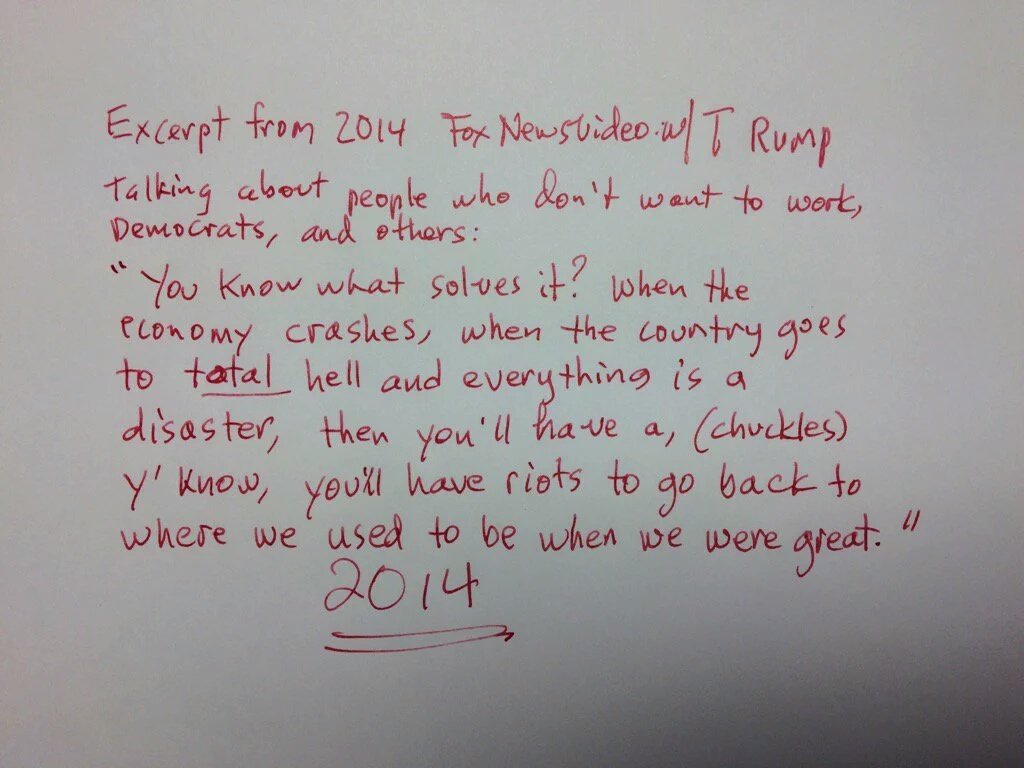 Excerpt from 2014 Fox News Video w/ T Rump
Talking about people who don't want to work,
Democrats, and others:
"You know what solves it? When the
economy crashes, when the country goes
to total hell and everything is a
disaster, then you'll have a, (chuckles)
y'know, you'll have riots to go back to
where we used to be when we were great."
2014